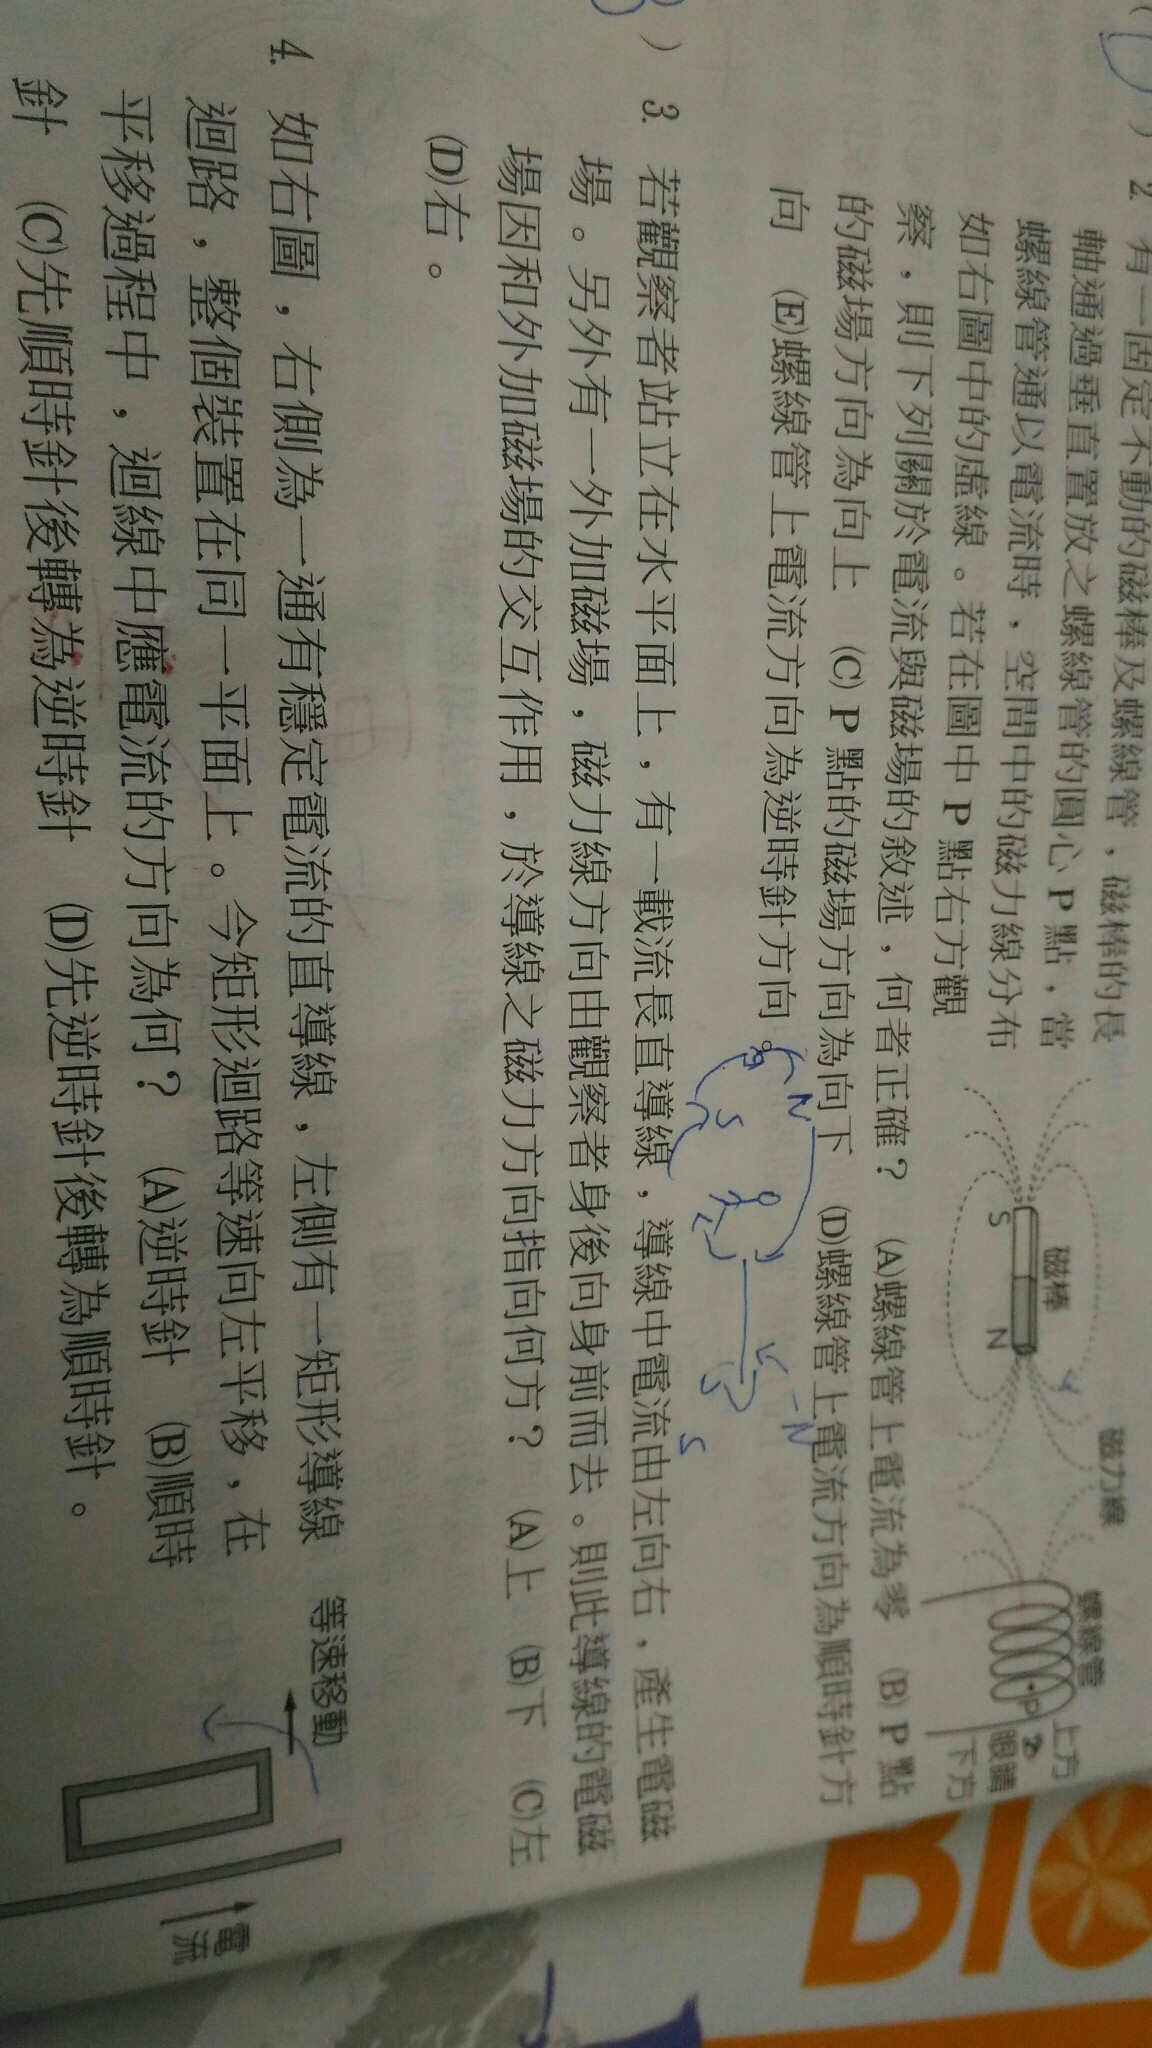 2. 有一固定不動的磁棒及螺線管，磁棒的長
軸通過垂直置放之螺線管的圓心P點，當
螺線管通以電流時，空間中的磁力線分布
如右圖中的虛線。若在圖中P點右方觀
察，則下列關於電流與磁場的敘述，何者正確？ (A)螺線管上電流為零 (B)P點
的磁場方向為向上 (C)P點的磁場方向為向下 (D)螺線管上電流方向為順時針方
向 (E)螺線管上電流方向為逆時針方向。
磁棒
S
N
磁力線
螺線管
P
上方
眼睛
下方
N
S
N
S
) 3. 若觀察者站立在水平面上，有一載流長直導線，導線中電流由左向右，產生電磁
場。另外有一外加磁場，磁力線方向由觀察者身後向身前而去。則此導線的電磁
場因和外加磁場的交互作用，於導線之磁力方向指向何方？ (A)上 (B)下 (C)左
(D)右。
4. 如右圖，右側為一通有穩定電流的直導線，左側有一矩形導線
迴路，整個裝置在同一平面上。今矩形迴路等速向左平移，在
平移過程中，迴線中應電流的方向為何？ (A)逆時針 (B)順時
針 (C)先順時針後轉為逆時針 (D)先逆時針後轉為順時針。
等速移動
電流
BIO